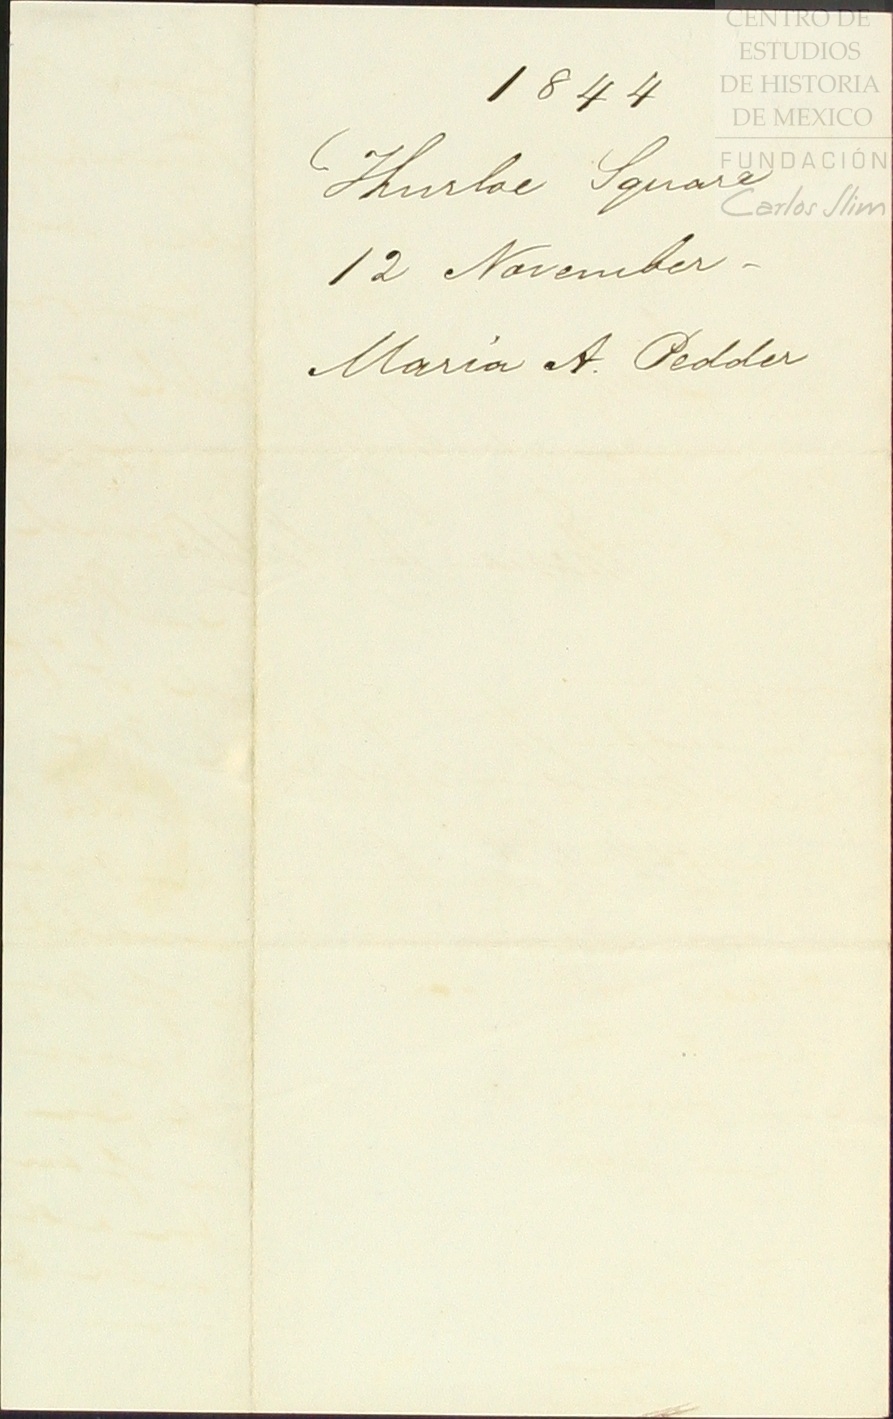 CENTRO DE
ESTUDIOS
DE HISTORIA
DE MEXICO
FUNDACIÓN
Carlos Slim
1844
Thurloe Square
12 November -
Maria A. Pedder